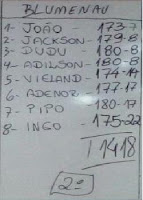 BLUMENAU
1- JOÃO - 173-7
2- JACKSON - 179-8
3- DUDU - 180-8
4- ADILSON - 180-8
5- VIELAND - 174-14
6- ADENOR - 177-17
7- PIPO - 180-17
8- INGO - 175-22
1418
2º